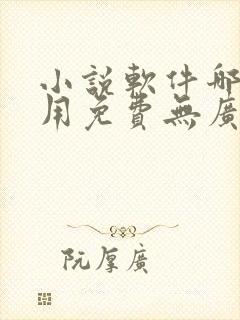 小說軟件哪
用免費無廣
阮厚廣